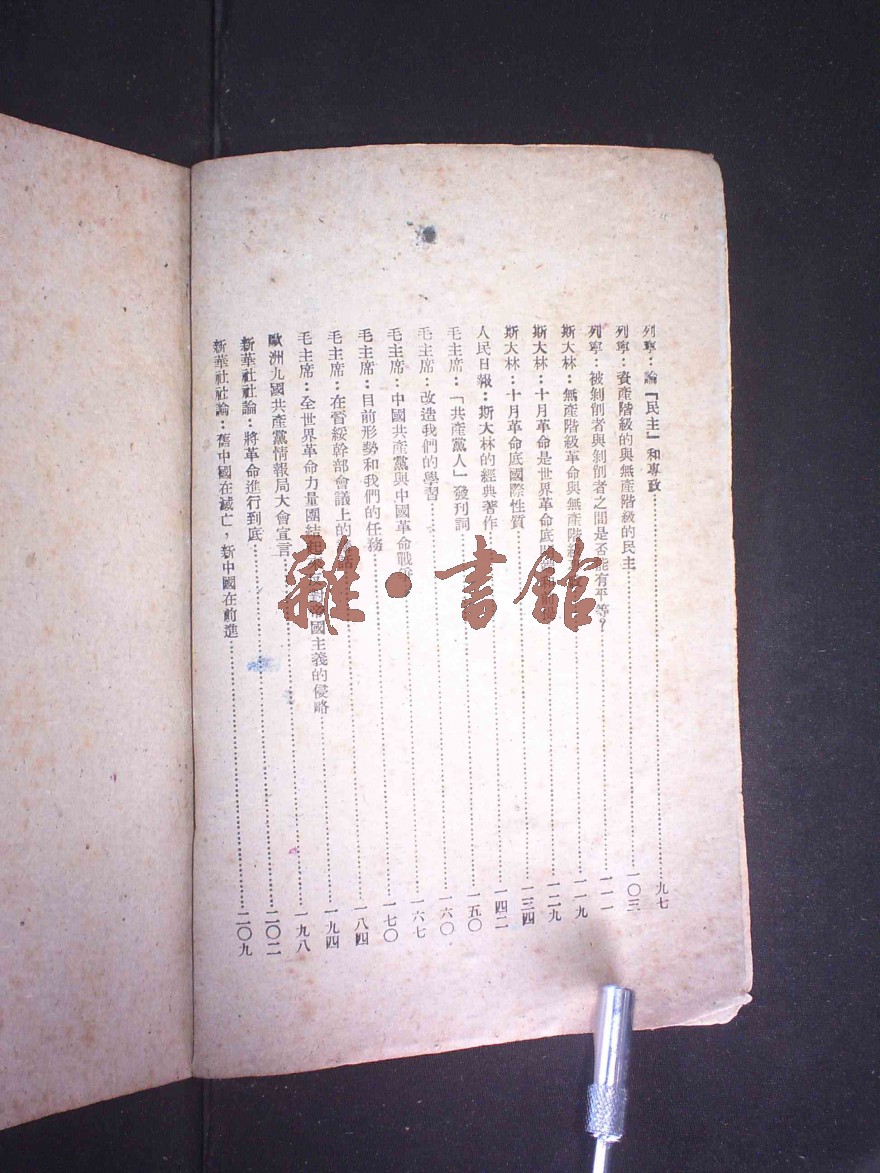 列寧：論『民主』和專政……九七
列寧：資產階級的與無產階級的民主……一〇三
列寧：被剝削者與剝削者之間是否能有平等？……一一一
斯大林：無產階級革命與無產階級……一一九
斯大林：十月革命是世界革命底……一二九
斯大林：十月革命底國際性質……一三四
人民日報：斯大林的經典著作……一四二
毛主席：「共產黨人」發刊詞……一五〇
毛主席：改造我們的學習……一六〇
毛主席：中國共產黨與中國革命戰……一六七
毛主席：目前形勢和我們的任務……一七〇
毛主席：在晉綏幹部會議上的話……一八四
毛主席：全世界革命力量團結起來反對帝國主義的侵略……一九四
歐洲九國共產黨情報局大會宣言……一九八
新華社社論：將革命進行到底……二〇二
新華社社論：舊中國在滅亡，新中國在前進……二〇九
雜·書館